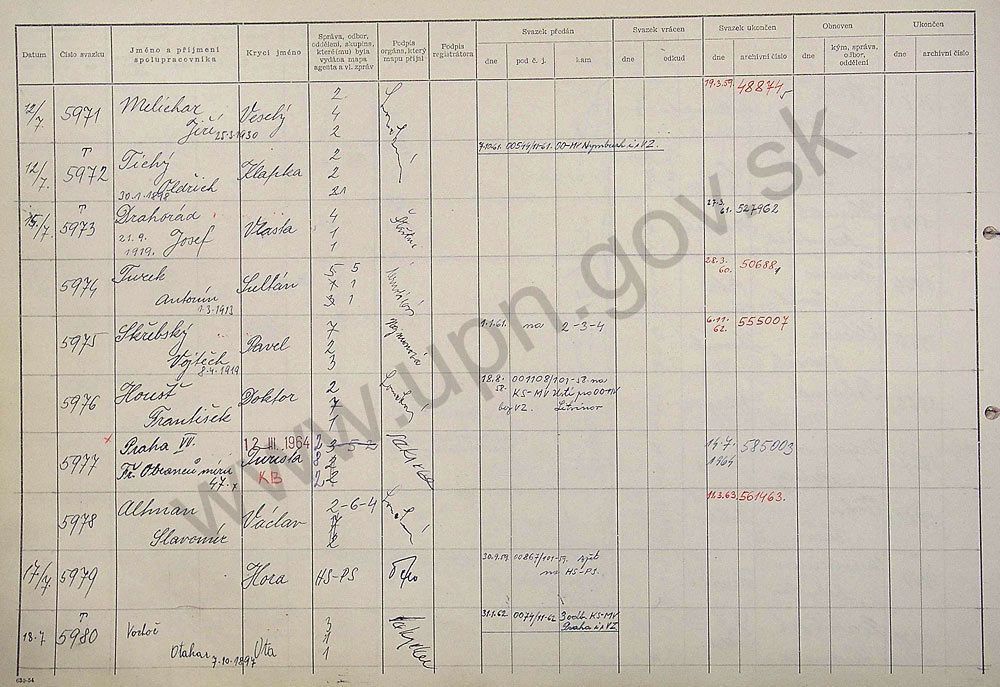 Datum
Číslo svazku
Jméno a příjmení
spolupracovníka
Krycí jméno
Správa, odbor,
oddělení, skupina,
které(mu) byla
vydána mapa
agenta a vl. zpráv
Podpis
orgána, který
mapu přijal
Podpis
registrátora
Svazek předán
dne pod č. j. kam
Svazek vrácen
dne odkud
Svazek ukončen
dne archivní číslo
Obnoven
dne kým, správa,
odbor,
oddělení
Ukončen
dne archivní číslo
12/7. 5971 Melichar Veselý 2 19.3.59. 48874
Jiří 25.3.1930 4
2
12/7. T 5972 Tichý Klapka 2 7.10.61. 00-MV Nymburk VZ.
Oldřich 2
30.1.1898 21
15/7. T 5973 Drahorád Vlasta 4 27.3. 61. 527962
21.9. Josef 1
1919. 1
5974 Turek Sultán 5 5 28.3. 60. 50688
Antonín 1
1.3.1913 1
5975 Skřebský Pavel 7 1.1.61. na 2-3-4 6.11. 62. 555007
Vojtěch 2
8.4.1919 3
5976 Doktor 2 18.8. 58. 001108/101-58 na
František 7 KS-MV Ústí pro OO-MV
1 bez VZ. Litvínov
5977 Praha IV. 12. III. 1964 14.7. 1964 585003
Tř. Obránců míru Turista
47. KB
5978 Altman Václav 2-6-4 18.3.63. 561463.
Slavomír 2
17/7. 5979 Hora HS-PS 30.9.59. 00867/101-59. zpět
na HS-PS.
18.7 T 5980 Uta 3 31.1.62. 0074/11-62 3 odb. KS-MV
Otakar 1 Praha VZ
7.10.1897
635-54
www.upn.gov.sk